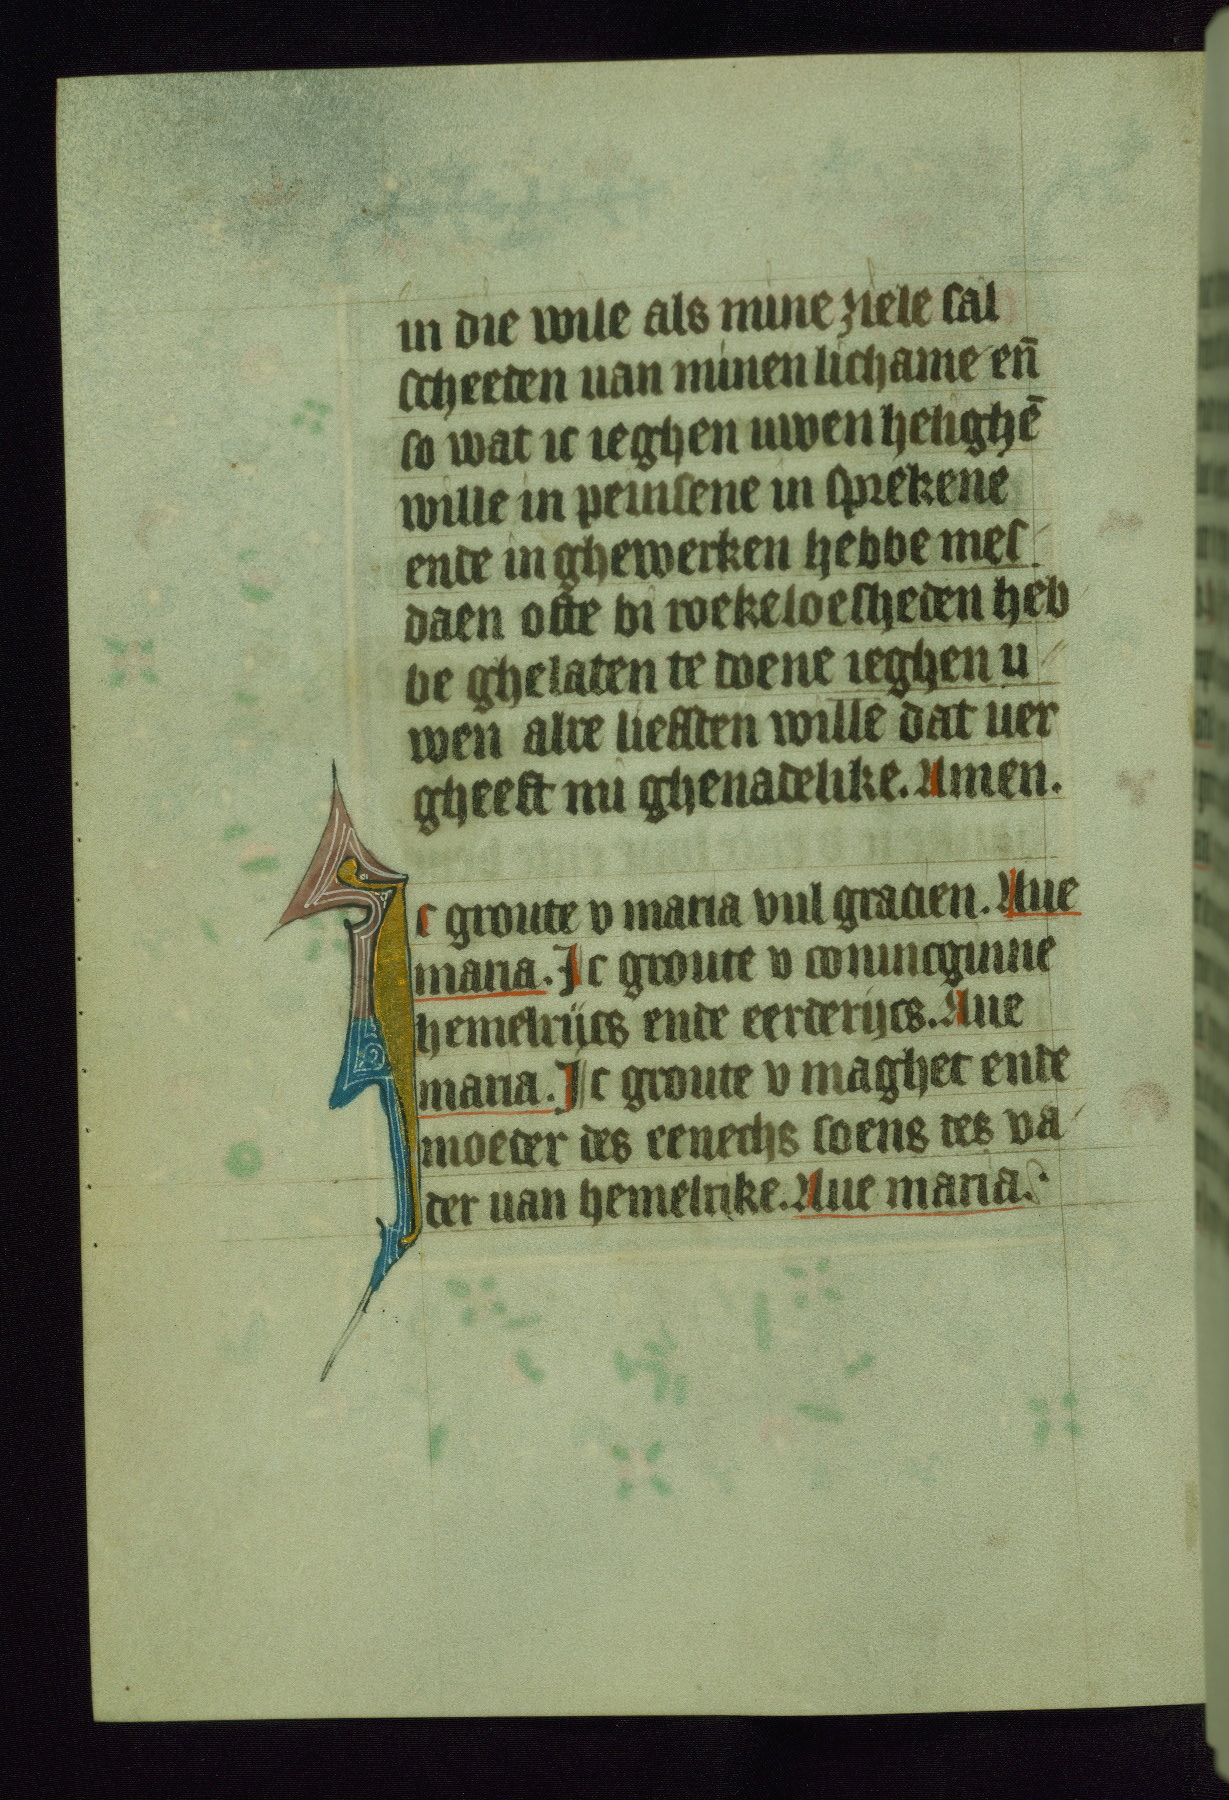 in die wile als mine ziele sal
scheeden uan minen lichame en̄
so wat ic ieghen uwen helighē
wille in peinsene in sprekene
ende in ghewerken hebbe mes
daen ofte bi roekeloesheden heb
be ghelaten te doene ieghen u
wen alre liefsten wille dat uer
gheeft mi ghenadelike. Amen.
Ic groute v maria vul gracien. Aue
maria. Ic groute v conincginne
hemelrijcs ende eerderijcs. Aue
maria. Ic groute v maghet ende
moeder des eenechs soens des va
der uan hemelrike. Aue maria.